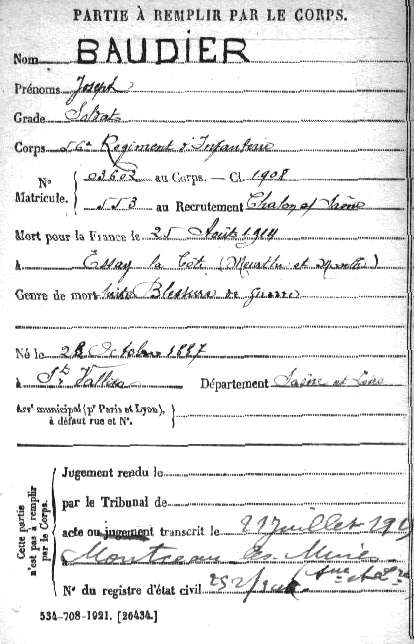 PARTIE À REMPLIR PAR LE CORPS.
Nom BAUDIER
Prénoms Joseph
Grade Soldat
Corps 56e Régiment d'Infanterie
N° 03602 au Corps. — Cl. 1908
Matricule. 553 au Recrutement Chalon s/ Saône
Mort pour la France le 25 Août 1914
à Essey la Côte (Meurthe et Moselle)
Genre de mort suite Blessures de guerre
Né le 28 Octobre 1887
à St Vallier Département Saône et Loire
Arrt municipal (pr Paris et Lyon),
à défaut rue et N°.
Cette partie
n'est pas à remplir
par le Corps.
Jugement rendu le
par le Tribunal de
acte ou jugement transcrit le 21 Juillet
à Montceau les Mines
N° du registre d'état civil 252/
534-708-1921. [26434.]